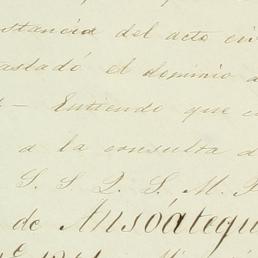 stancia del acto civ
traslado el dominio a
Entiendo que c
a la consulta d
S. S. Q. S. M. B
de Ansoátegui